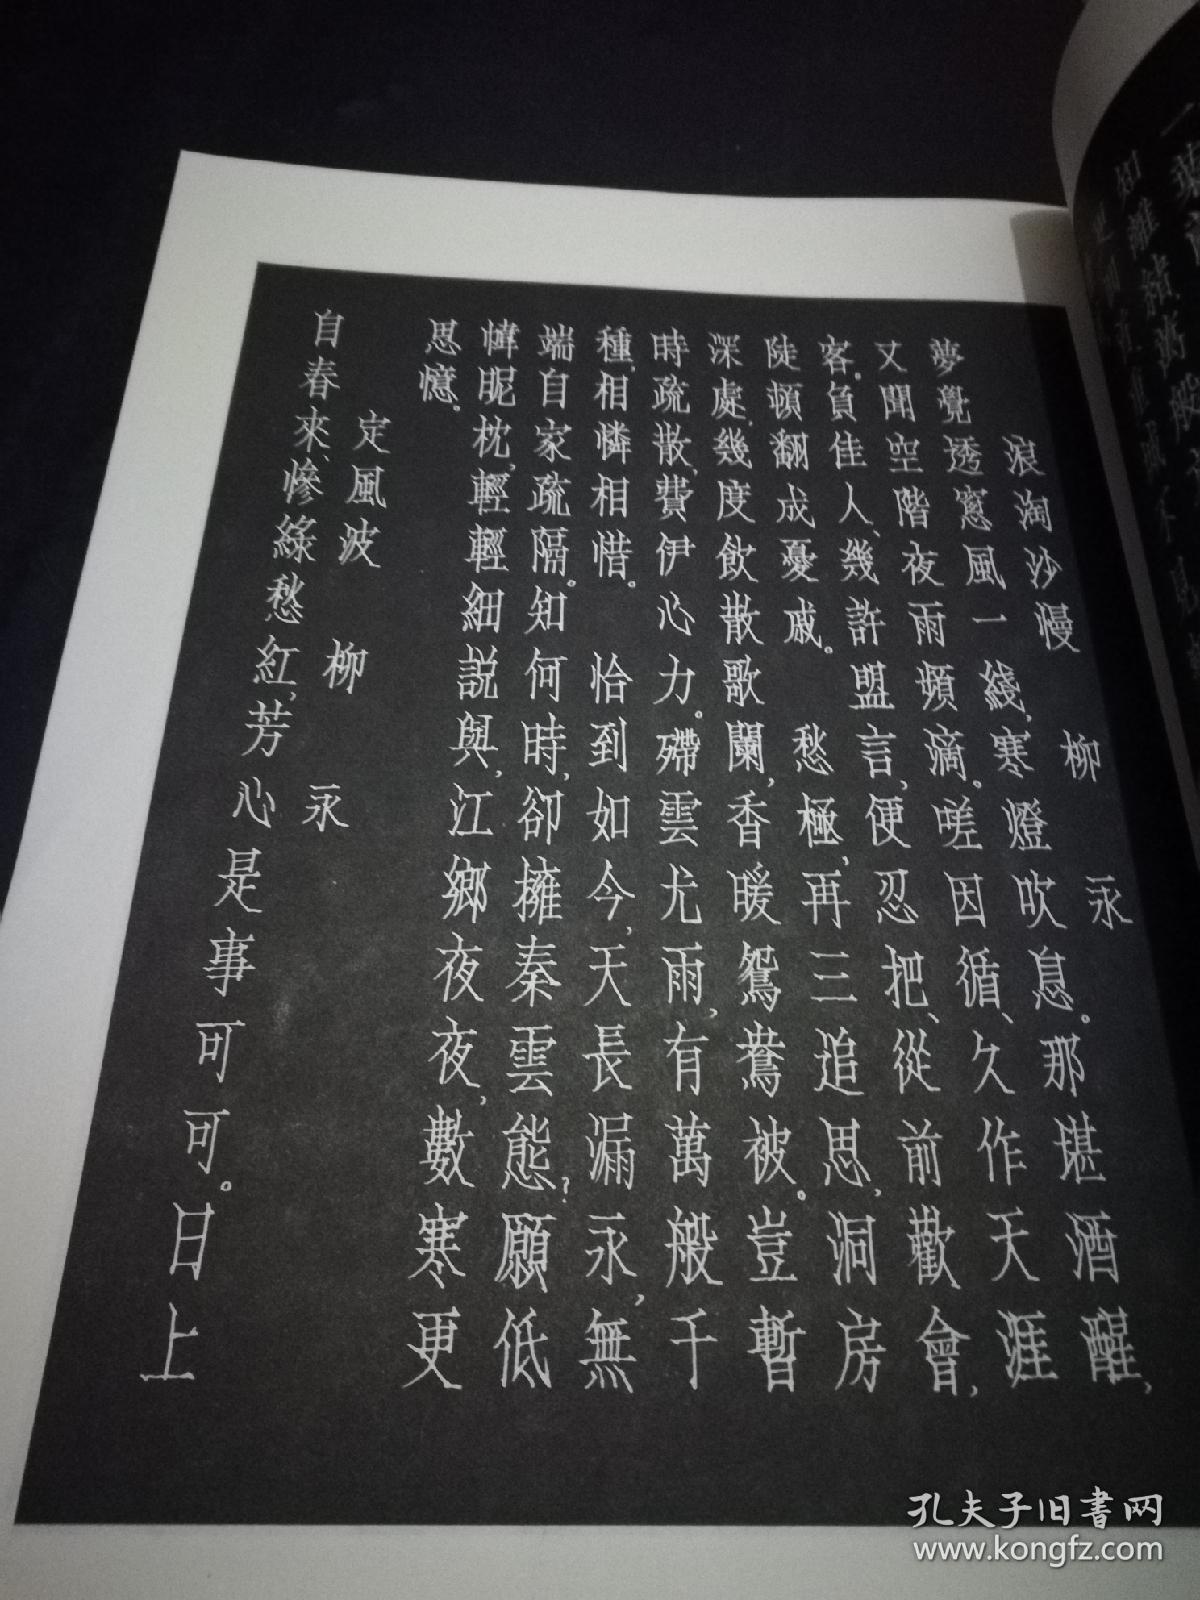 浪淘沙慢　柳永
夢覺透窻風一綫，寒燈吹息。那堪酒醒，
又聞空階夜雨頻滴。嗟因循、久作天涯
客。負佳人、幾許盟言，便忍把、從前歡會，
陡頓翻成憂戚。　愁極，再三追思，洞房
深處，幾度飲散歌闌，香暖鴛鴦被。豈暫
時疏散，費伊心力。殢雲尤雨，有萬般千
種，相憐相惜。　恰到如今，天長漏永，無
端自家疏隔。知何時，卻擁秦雲態？願低
幃昵枕，輕輕細説與，江鄉夜夜，數寒更
思憶。
定風波　柳永
自春來、慘綠愁紅，芳心是事可可。日上
孔夫子旧書网
www.kongfz.com